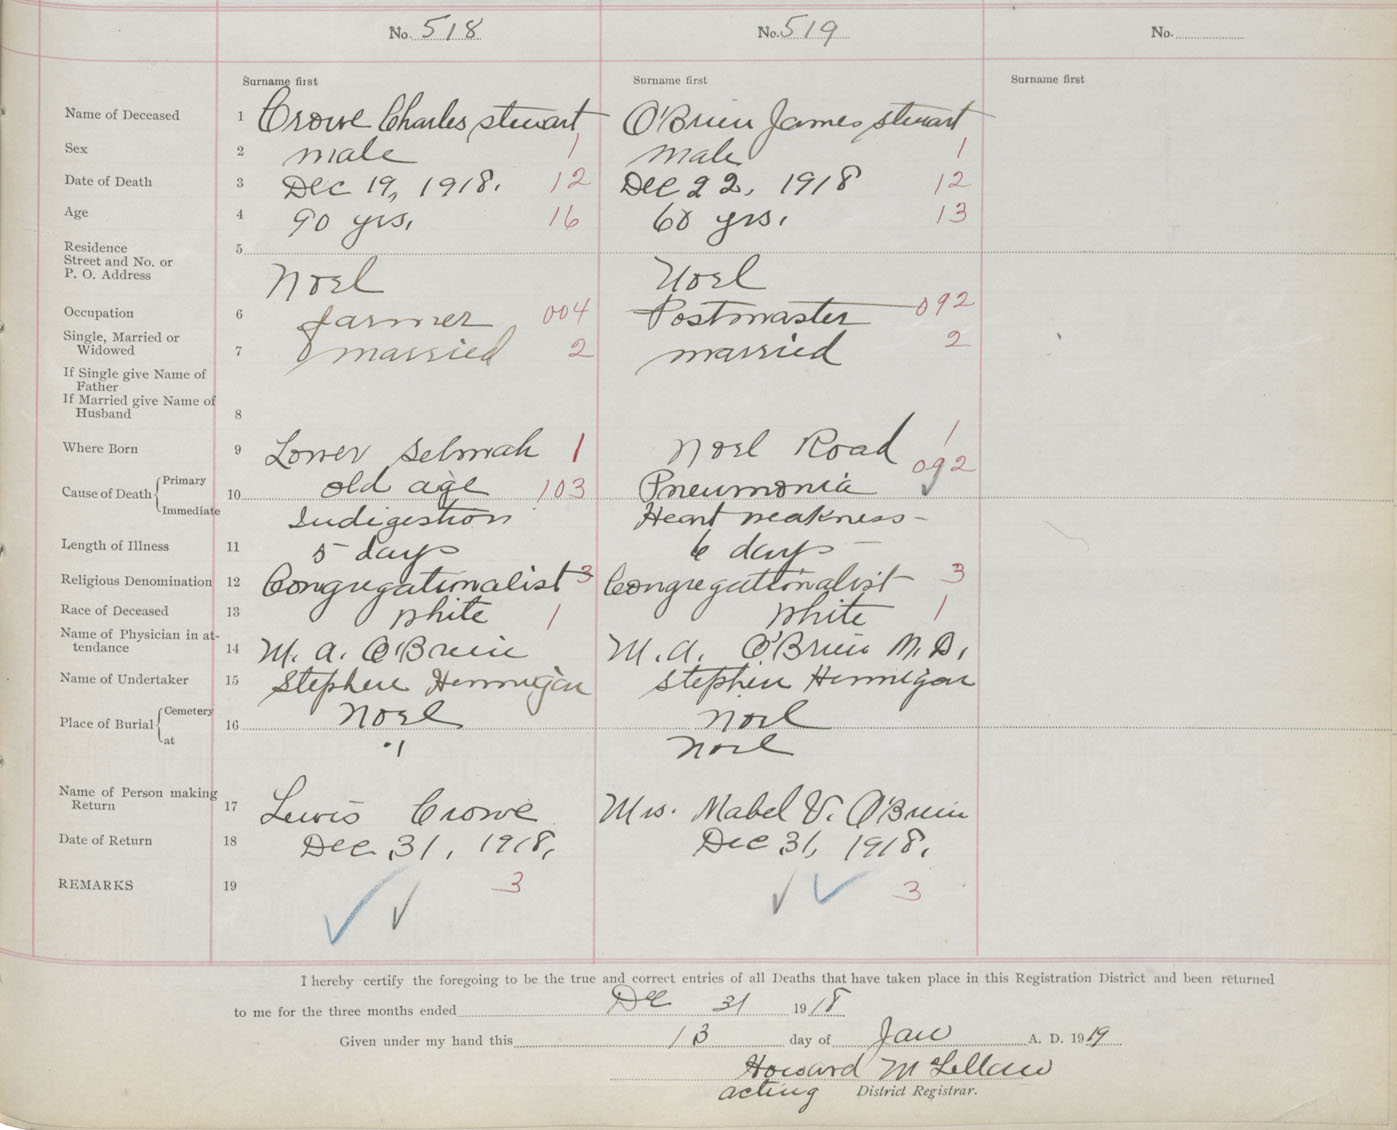 No. 518 No. 519 No.
Surname first Surname first Surname first
Name of Deceased 1 Crowe Charles stewart O'Brien James stewart
Sex 2 male 1 male 1
Date of Death 3 Dec 19, 1918. 12 Dec 22, 1918 12
Age 4 90 yrs. 16 60 yrs. 13
Residence 5
Street and No. or
P. O. Address Noel Noel
Occupation 6 farmer 004 Postmaster 092
Single, Married or
Widowed 7 married 2 married 2
If Single give Name of
Father
If Married give Name of
Husband 8
Where Born 9 Lower Selmah 1 Noel Road 1
Cause of Death Primary 10 old age 103 Pneumonia 092
Immediate Indigestion Heart weakness -
Length of Illness 11 5 days 6 days
Religious Denomination 12 Congregationalist 3 Congregationalist 3
Race of Deceased 13 White 1 White 1
Name of Physician in at-
tendance 14 M. A. O'Brien M. A. O'Brien M. D.
Name of Undertaker 15 Stephen Hennigar Stephen Hennigar
Place of Burial Cemetery 16 Noel Noel
at " Noel
Name of Person making
Return 17 Lewis Crowe Mrs. Mabel V. O'Brien
Date of Return 18 Dec 31, 1918. Dec 31, 1918.
REMARKS 19 3 3
I hereby certify the foregoing to be the true and correct entries of all Deaths that have taken place in this Registration District and been returned
to me for the three months ended Dec 31 1918
Given under my hand this 13 day of Jan A. D. 1919
Howard McLellan
acting District Registrar.